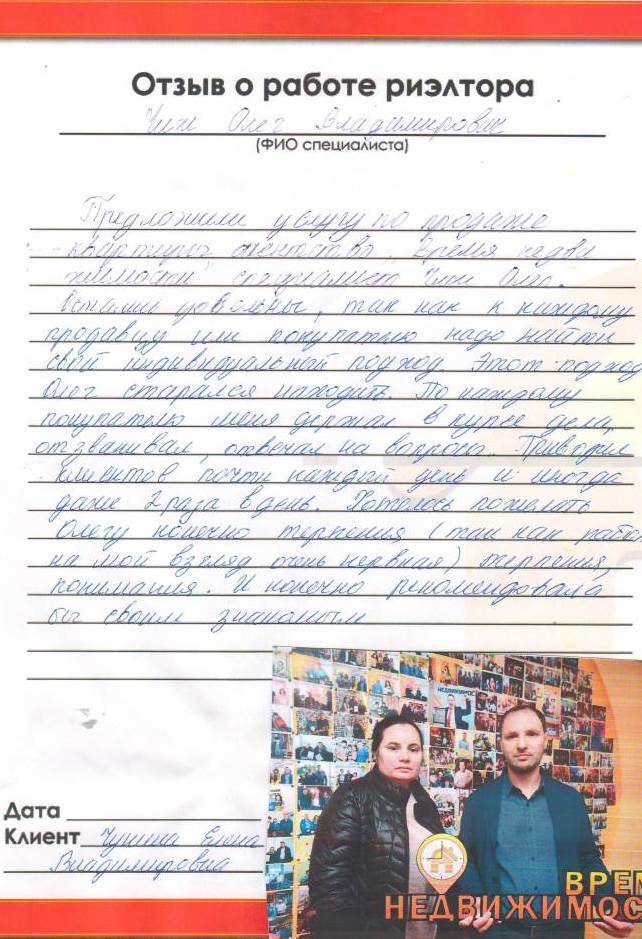 Отзыв о работе риэлтора
Чиж Олег Владимирович
(ФИО специалиста)
Предложили услугу по продаже
квартиры агентство „Время недви
жимости" специалист Чиж Олег.
Остались довольны, так как к каждому
продавцу или покупателю надо найти
свой индивидуальный подход. Этот подход
Олег старался находить. По каждому
покупателю меня держал в курсе дела,
отзванивал, отвечал на вопросы. Приводил
клиентов почти каждый день и иногда
даже 2 раза в день. Хотелось пожелать
Олегу конечно терпения (так как работа
на мой взгляд очень нервная) терпения,
понимания. И конечно рекомендовала
бы своим знакомым
НЕДВИЖИМОС
Дата
Клиент Елена
Владимировна
ВРЕМ
НЕДВИЖИМОС